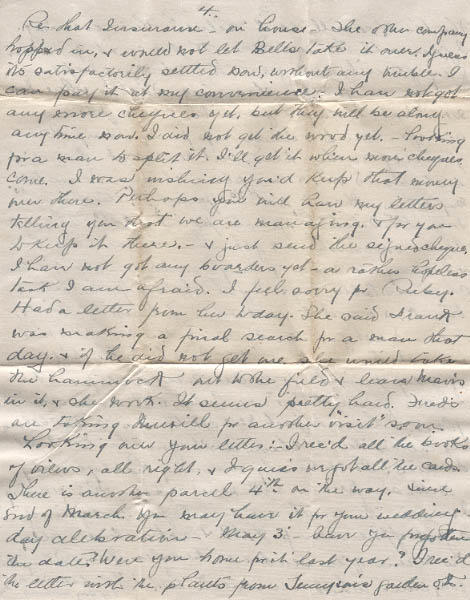 4.
Re that Insurance - on house - The other company
hopped in, & would not let Bells take it over. I guess
its satisfactorily settled now, without any trouble. I
can pay it at my convenience. I have not got
any more cheques yet, but they will be along
anytime now. I did not get the wood yet. - Looking
for a man to split it. I'll get it when more cheques
come. I was wishing you'd keep that money
over there. Perhaps you will have my letters
telling you that we are managing. & for you
to keep it there. - & just send the signed cheques.
I have not got any boarders yet - a rather hopeless
task I am afraid. I feel sorry for Ruby.
Had a letter from her today. She said Frank
was making a final search for a man that
day. & if he did not get one, she would take
the hammock out to the field & leave Mavis
in it, & she work. It seems pretty hard. Fred's
are taking for another visit soon.
Looking over your letter: - I rec'd all the books
of views, all right, & I guess we got all the cards.
There is another parcel 4th on the way. Since
end of March. You may have it for your wedding
day celebration - May 3 - have you forgotten
the date? Were you home for it last year? I rec'd
the letter with the plants from Tennyson's garden &